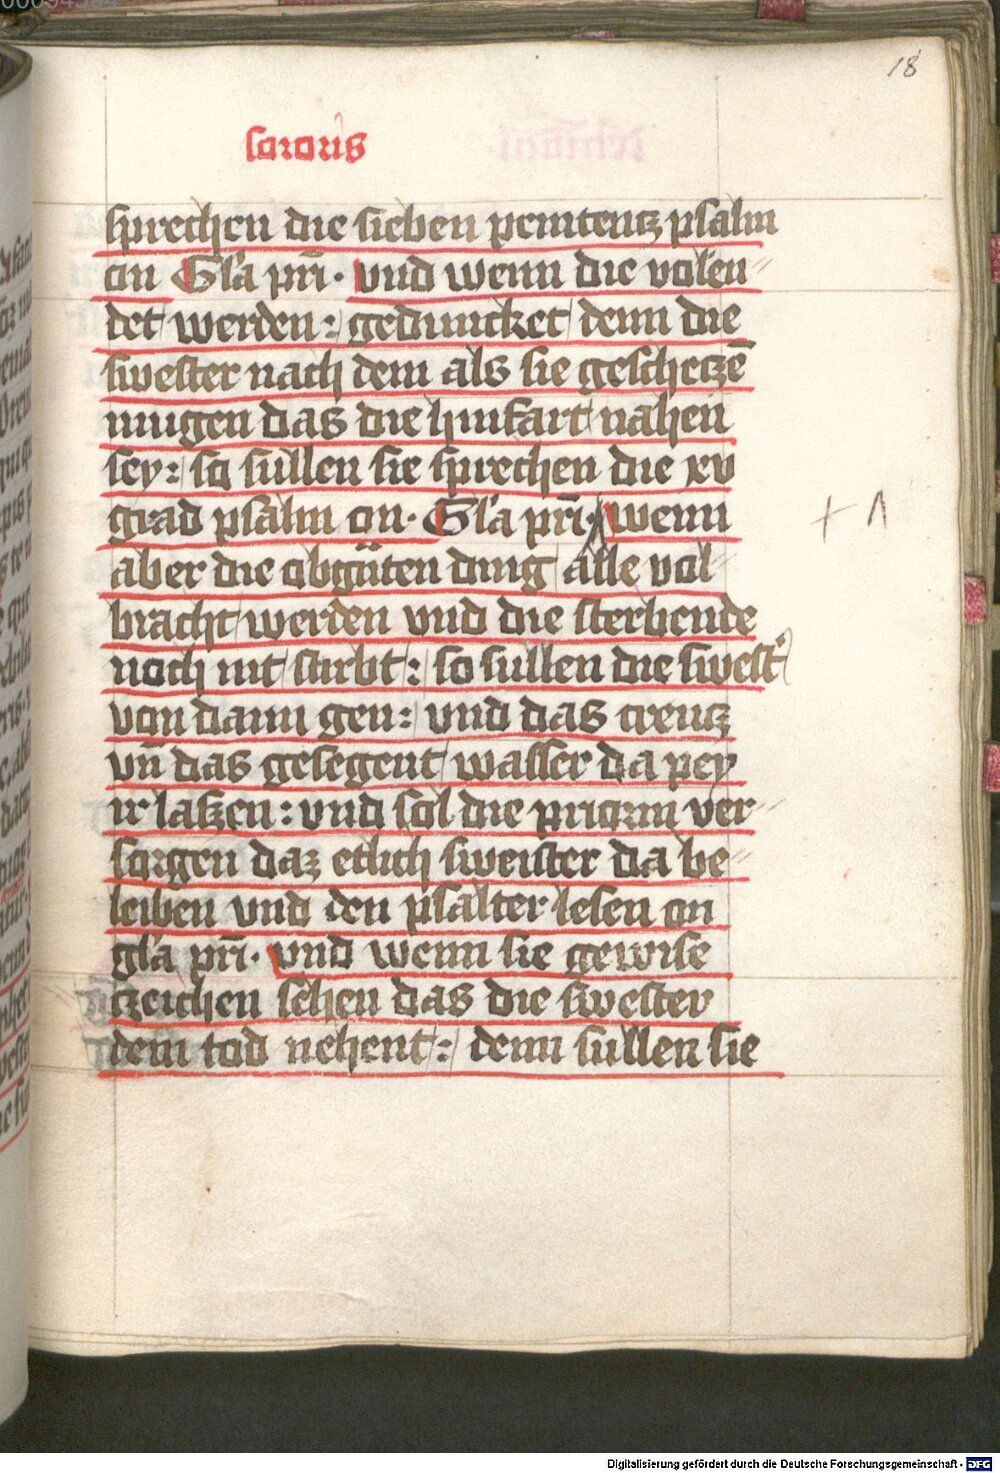 18
sororis
sprechen die sieben penitentz psalm
on Gl'a pr̄i. vnd wenn die volen
det werden: geduncket denn die
swester nach dem als sie geschetzē
mugen das die hinfart nahen
sey: so sullen sie sprechen die xv
grad psalm on. Gl'a pr̄i. wenn
+ ʌ
aber die obgůten ding alle vol
bracht werden vnd die sterbende
noch nit stirbt: so sullen die swest'
von dann gen: vnd das creutz
vn̄ das gesegent wasser da pey
ir laszen: vnd sol die priorin ver
sorgen daz etlich sweister da be
leiben vnd den psalter lesen on
gl'a pr̄i. vnd wenn sie gewise
tzeichen sehen das die swester
dem tod nehent: denn sullen sie
Digitalisierung gefördert durch die Deutsche Forschungsgemeinschaft - DFG